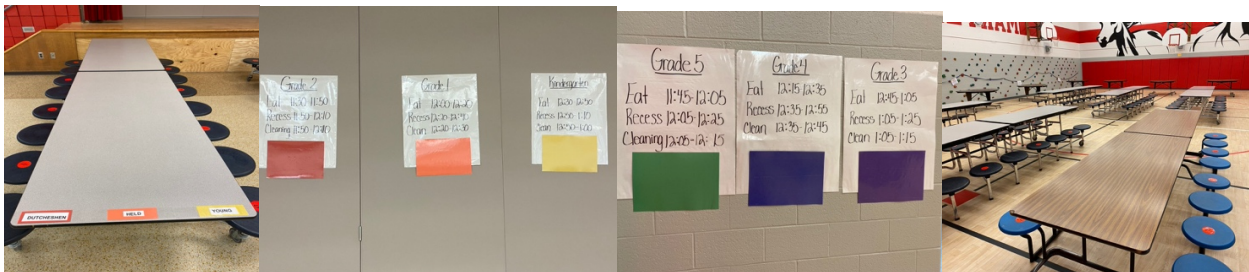 DUTCHESHEN
HELD
YOUNG
Grade 2
Eat 11:30-11:50
Recess 11:50-12:10
Cleaning 11:50-12:00
Grade 1
Eat 12:00-12:20
Recess 12:20-12:40
Clean 12:20-12:30
Kindergarten
Eat 12:30-12:50
Recess 12:50-1:10
Clean 12:50-1:00
Grade 5
Eat 11:45-12:05
Recess 12:05-12:25
Cleaning 12:05-12:15
Grade 4
Eat 12:15-12:35
Recess 12:35-12:55
Clean 12:35-12:45
Grade 3
Eat 12:45-1:05
Recess 1:05-1:25
Clean 1:05-1:15